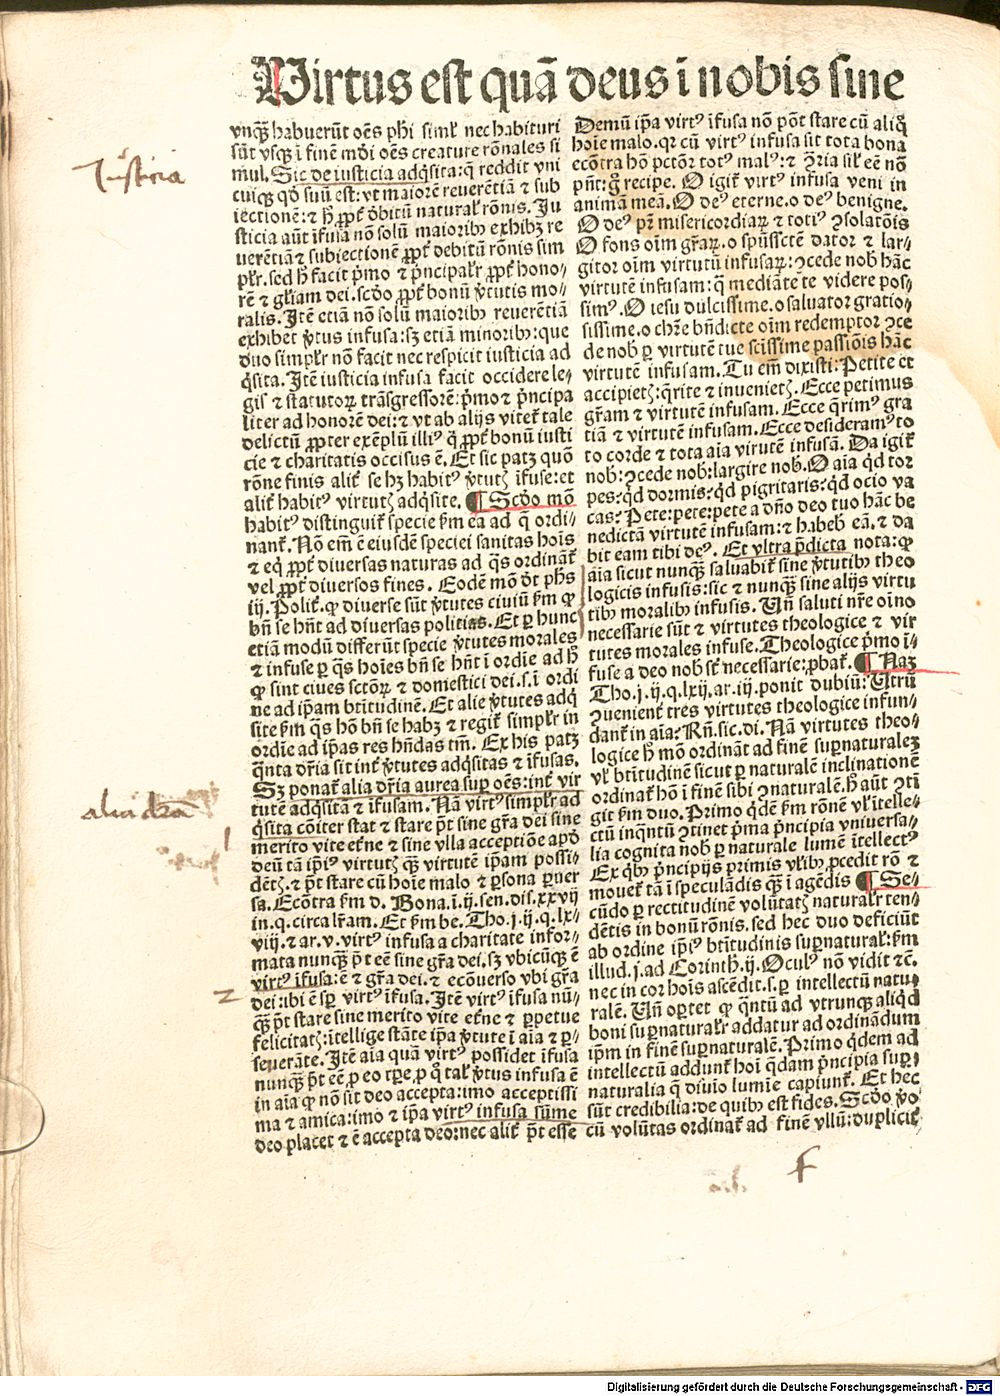 Virtus est quā deus ī nobis sine
vnqꝫ habuerūt oēs phi simꝉ nec habituri
sūt vsqꝫ ī finē mūdi oēs creature rōnales si
mul. Sic de iusticia adq̄sita: q̄ reddit vni
cuiqꝫ qd̄ suū est: vt maiorē reuerētiā ⁊ sub
iectionē: ⁊ h̄ ꝓpt̄ dbitū naturaꝉ rōnis. Ju
sticia aūt īfusa nō solū maioribꝰ exhibꝫ re
uerētiā ⁊ subiectionē ꝓpt̄ debitū rōnis sim
plr̄. sed h̄ facit p̄mo ⁊ p̄ncipaꝉr ꝓpt̄ hono/
rē ⁊ gl̄iam dei. scd̄o ꝓpt̄ bonū v̄tutis mo/
ralis. Itē etiā nō solū maioribꝰ reuerētiā
exhibet v̄tus infusa: sꝫ etiā minoribꝰ: que
duo simplr̄ nō facit nec respicit iusticia ad
q̄sita. Itē iusticia infusa facit occidere le/
gis ⁊ statutoꝝ trāsgressorē: p̄mo ⁊ p̄ncipa
liter ad honorē dei: ⁊ vt ab alijs vitet̄ tale
delictū ꝓpter exēplū illiꝰ q̄ ꝓpt̄ bonū iusti
cie ⁊ charitatis occisus ē. Et sic patꝫ quō
rōne finis alit̄ se hꝫ habitꝰ v̄tutꝫ īfuse: et
alit̄ habitꝰ virtutꝫ adq̄site. ¶ Scd̄o mō
habitꝰ distinguit̄ specie ẜm ea ad q̄ ordi/
nant̄. Nō em̄ ē eiusdē speciei sanitas hoīs
⁊ eq̄ ꝓpt̄ diuersas naturas ad q̄s ordināt̄
vel ꝓpt̄ diuersos fines. Eodē mō dt̄ phs
iij. Polit̄. ꝙ diuerse sūt v̄tutes ciuiū ẜm ꝙ
bn̄ se hn̄t ad diuersas politias. Et ꝑ hunc
etiā modū differūt specie v̄tutes morales
⁊ infuse ꝑ q̄s hoīes bn̄ se hn̄t ī ordīe ad h̄
ꝙ sint ciues sctōꝝ ⁊ domestici dei. s. ī ordi
ne ad ip̄am btītudinē. Et alie v̄tutes adq̄
site ẜm q̄s hō bn̄ se habꝫ ⁊ regit̄ simplr̄ in
ordīe ad ip̄as res hn̄das tm̄. Ex his patꝫ
q̄nta dr̄ia sit int̄ v̄tutes adq̄sitas ⁊ īfusas.
Sꝫ ponat̄ alia dr̄ia aurea suꝑ oēs: int̄ vir
tutē adq̄sitā ⁊ īfusam. Nā virtꝰ simplr̄ ad
q̄sita cōiter stat ⁊ stare pt̄ sine gr̄a dei sine
merito vite et̄ne ⁊ sine vlla acceptiōe apd̄
deū tā ip̄iꝰ virtutꝫ qꝫ virtutē ip̄am possi/
dētꝫ. ⁊ pt̄ stare cū hoīe malo ⁊ ꝑsona ꝑuer
sa. Ecōtra ẜm d. Bona. ī. ij. sen. dis. xxvij
in. q. circa lr̄am. Et ẜm be. Tho. j. ij. q. lx/
viij. ⁊ ar. v. virtꝰ infusa a charitate infor/
mata nunqꝫ pt̄ eē sine gr̄a dei. sꝫ vbicūqꝫ ē
virtꝰ īfusa: ē ⁊ gr̄a dei. ⁊ ecōuerso vbi gr̄a
dei: ibi ē sꝑ virtꝰ īfusa. Itē virtꝰ īfusa nū/
qꝫ pt̄ stare sine merito vite et̄ne ⁊ ꝑpetue
felicitatꝫ: ītellige stāte ip̄a v̄tute ī aīa ⁊ ꝑ/
seuerāte. Itē aīa quā virtꝰ possidet īfusa
nunqꝫ pt̄ eē ꝓ eo tꝑe, ꝓ q̄ taꝉ v̄tus infusa ē
in aīa ꝙ nō sit deo accepta: imo acceptissi
ma ⁊ amica: imo ⁊ ip̄a virtꝰ infusa sūme
deo placet ⁊ ē accepta deo: nec alit̄ pt̄ esse
Demū ip̄a virtꝰ īfusa nō pōt stare cū aliq̄
hoīe malo. qꝛ cū virtꝰ infusa sit tota bona
ecōtra hō pctōr totꝰ malꝰ: ⁊ ꝯria siꝉ eē nō
pn̄t: g̊ recipe. O igit̄ virtꝰ infusa veni in
animā meā. O deꝰ eterne. o deꝰ benigne.
O deꝰ pr̄ misericordiaꝝ ⁊ totiꝰ ꝯsolatōis
O fons oīm gr̄aꝝ. o spūssctē dator ⁊ lar/
gitor oīm virtutū infusaꝝ: ꝯcede nob̄ hāc
virtutē infusam: q̄ mediāte te videre pos/
simꝰ. O iesu dulcissime. o saluator gratio/
sissime. o chr̄e bn̄dicte oīm redemptor ꝯce
de nob̄ ꝑ virtutē tue scīssime passiōis hāc
virtutē infusam. Tu em̄ dixisti: Petite et
accipietꝫ: q̄rite ⁊ inuenietꝫ. Ecce petimus
gr̄am ⁊ virtutē infusam. Ecce q̄rimꝰ gra
tiā ⁊ virtutē infusam. Ecce desideramꝰ to
to corde ⁊ tota aīa virutē infusā. Da igit̄
nob̄: ꝯcede nob̄: largire nob̄. O aīa qd̄ tor
pes: qd̄ dormis: qd̄ pigritaris: qd̄ ocio va
cas: Pete: pete: pete a dn̄o deo tuo hāc be
nedictā virtutē infusam: ⁊ habeb̄ eā. ⁊ da
bit eam tibi deꝰ. Et vltra p̄dicta nota: ꝙ
aīa sicut nunqꝫ saluabit̄ sine v̄tutibꝰ theo
logicis infusis: sic ⁊ nunqꝫ sine alijs virtu
tibꝰ moralibꝰ infusis. Vn̄ saluti nr̄e oīno
necessarie sūt ⁊ virtutes theologice ⁊ vir
tutes morales infuse. Theologice p̄mo ī/
fuse a deo nob̄ st̄ necessarie: ꝓbat̄. ¶ Naꝫ
Tho. j. ij. q. lxij. ar. iij. ponit dubiū: Vtrū
ꝯuenient̄ tres virtutes theologice infun/
dant̄ in aīa? Rn̄. sic. di. Nā virtutes theo/
logice h̄ mō ordināt ad finē suꝑnaturaleꝫ
vꝉ btītudinē sicut ꝑ naturalē inclinationē
ordinat̄ hō ī finē sibi ꝯnaturalē. h̄ aūt ꝯtī
git ẜm duo. Primo q̄dē ẜm rōnē vꝉ ītelle/
ctū inq̄ntū ꝯtinet p̄ma p̄ncipia vniuersa/
lia cognita nob̄ ꝑ naturale lumē ītellectꝰ
Ex qb̄ꝰ p̄ncipijs primis vꝉibꝰ ꝓcedit rō ⁊
mouet̄ tā ī speculādis qꝫ ī agēdis ¶ Se/
cūdo ꝑ rectitudinē volūtatꝫ naturaꝉr ten/
dētis in bonū rōnis. sed hec duo deficiūt
ab ordine ip̄iꝰ btītudinis suꝑnaturaꝉ: ẜm
illud. j. ad Corinth. ij. Oculꝰ nō vidit ⁊c̄.
nec in cor hoīs ascēdit. s. ꝑ intellectū natu/
ralē. Vn̄ oꝑtet ꝙ q̄ntū ad vtrunqꝫ aliqd̄
boni suꝑnaturaꝉr addatur ad ordinādum
ip̄m in finē suꝑnaturalē. Primo q̄dem ad
intellectū addunt̄ hoī q̄dam p̄ncipia suꝑ/
naturalia q̄ diuīo lumīe capiunt̄. Et hec
sūt credibilia: de quibꝰ est fides. Scd̄o v̄o
cū volūtas ordinat̄ ad finē vllū: duplicit̄
Justicia
alia dr̄a
2
f
Digitalisierung gefördert durch die Deutsche Forschungsgemeinschaft - DFG